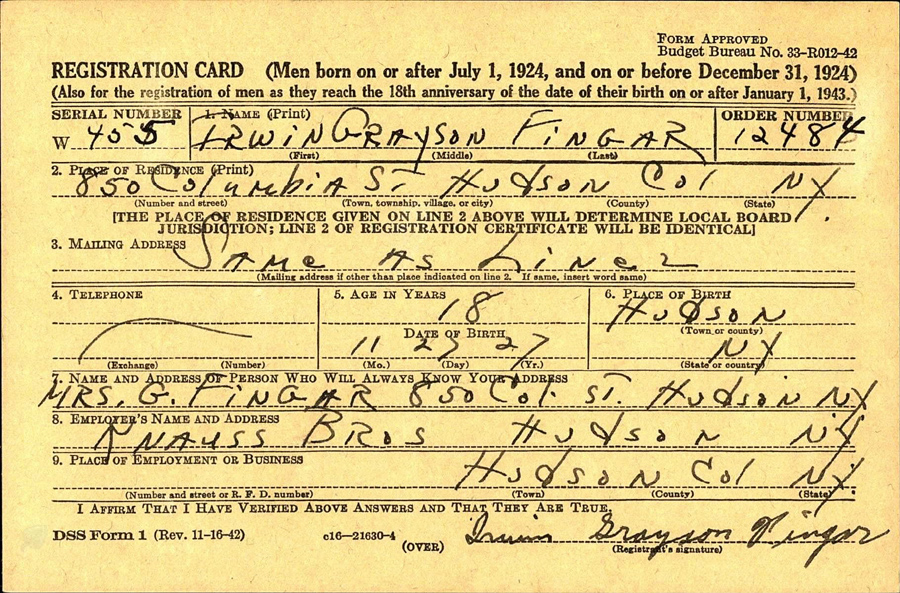 FORM APPROVED
Budget Bureau No. 33-R012-42
REGISTRATION CARD (Men born on or after July 1, 1924, and on or before December 31, 1924)
(Also for the registration of men as they reach the 18th anniversary of the date of their birth on or after January 1, 1943.)
SERIAL NUMBER 1. NAME (Print) ORDER NUMBER
W 455 IRWIN GRAYSON FINGAR 12484
(First) (Middle) (Last)
2. PLACE OF RESIDENCE (Print)
850 Columbia ST Hudson Col NY.
(Number and street) (Town, township, village, or city) (County) (State)
[THE PLACE OF RESIDENCE GIVEN ON LINE 2 ABOVE WILL DETERMINE LOCAL BOARD
JURISDICTION; LINE 2 OF REGISTRATION CERTIFICATE WILL BE IDENTICAL]
3. MAILING ADDRESS
Same As Line 2
(Mailing address if other than place indicated on line 2. If same, insert word same)
4. TELEPHONE 5. AGE IN YEARS 6. PLACE OF BIRTH
18 Hudson
DATE OF BIRTH (Town or county)
11 27 27 NY
(Exchange) (Number) (Mo.) (Day) (Yr.) (State or country)
7. NAME AND ADDRESS OF PERSON WHO WILL ALWAYS KNOW YOUR ADDRESS
MRS. G. FINGAR 850 Col. ST. Hudson NY
8. EMPLOYER'S NAME AND ADDRESS
KNAUSS BROS Hudson NY.
9. PLACE OF EMPLOYMENT OR BUSINESS
Hudson Col NY.
(Number and street or R. F. D. number) (Town) (County) (State)
I AFFIRM THAT I HAVE VERIFIED ABOVE ANSWERS AND THAT THEY ARE TRUE.
DSS Form 1 (Rev. 11-16-42) c16-21630-4 (OVER) Irwin Grayson Fingar
(Registrant's signature)